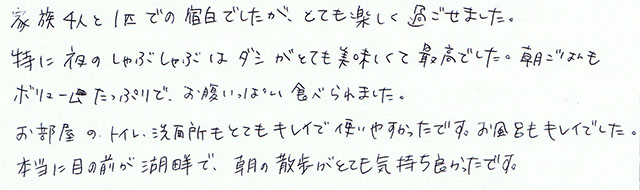 家族4人と1匹での宿泊でしたが、とても楽しく過ごせました。
特に夜のしゃぶしゃぶはダシがとても美味しくて最高でした。朝ごはんも
ボリュームたっぷりで、お腹いっぱい食べられました。
お部屋の、トイレ、洗面所もとてもキレイで使いやすかったです。お風呂もキレイでした。
本当に目の前が湖畔で、朝の散歩がとても気持ち良かったです。